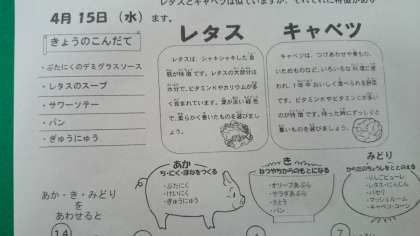 4月 15日（水）
ます。
きょうのこんだて
・ぶたにくのデミグラスソース
・レタスのスープ
・サワーソテー
・パン
・ぎゅうにゅう
レタス キャベツ
レタスは、シャキシャキした食
感が特徴です。レタスの大部分は
水分で、ビタミンKやカリウムが多
く含まれています。葉が淡い緑色
で、柔らかく巻いたものを選びまし
ょう。
キャベツは、つけあわせや煮もの、
いためものなど、いろいろな料理に使
われ、1年中おいしく食べられる野菜
です。ビタミンKやビタミンCが多い
のが特徴です。持った時にずっしりと
重いものを選びましょう。
あか・き・みどり
をあわせると
14
あか
ち・にく・ほねをつくる
・ぶたにく
・けいにく
・ぎゅうにゅう
き
ねつやちからのもとになる
・オリーブあぶら
・サラダあぶら
・さとう
・パン
みどり
からだのちょうしをととのえる
・りんごピューレ
・レタス・にんじん
・パセリ
・マッシュルーム
・キャベツ・コーン